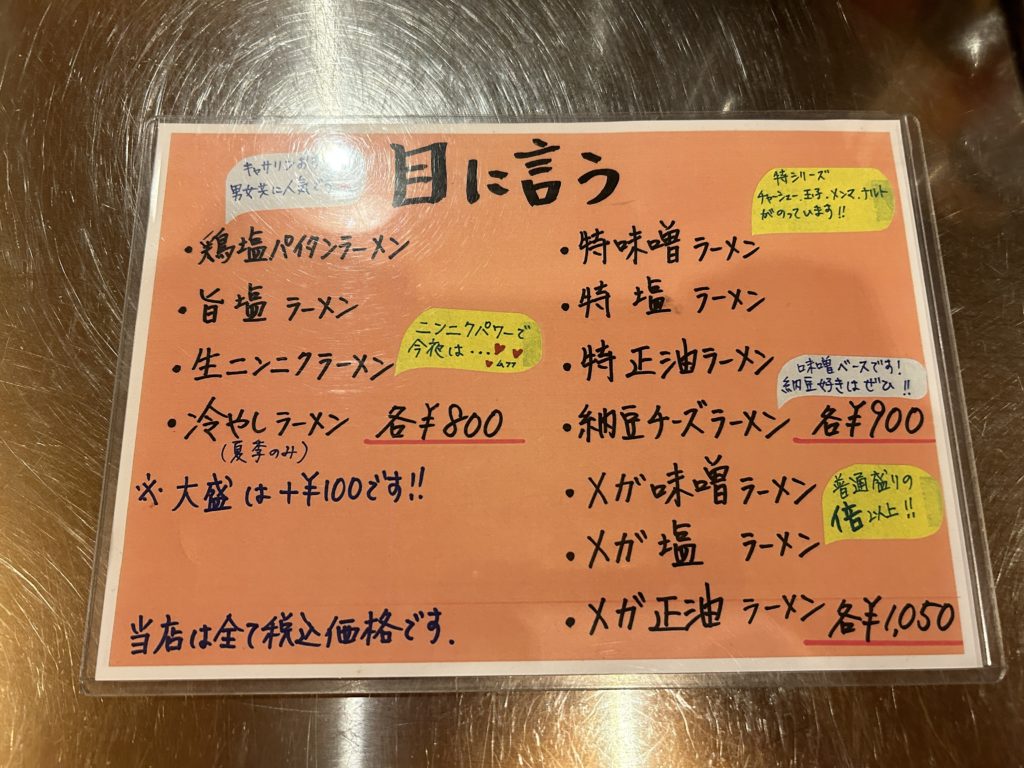 目に言う
キャサリンおす
男女共に人気で
・鶏塩パイタンラーメン
・旨塩 ラーメン
・生ニンニクラーメン
ニンニクパワーで
今夜は…
ムフフ
・冷やしラーメン 各¥800
(夏季のみ)
※大盛は+¥100です!!
当店は全て税込価格です.
特シリーズ
チャーシュー、玉子、メンマ、ナルト
がのっています!!
・特味噌ラーメン
・特 塩 ラーメン
・特 正油ラーメン
味噌ベースです!
納豆好きはぜひ!!
・納豆チーズラーメン 各¥900
・メガ味噌ラーメン
普通盛りの
倍以上!!
・メガ 塩 ラーメン
・メガ正油 ラーメン 各¥1,050